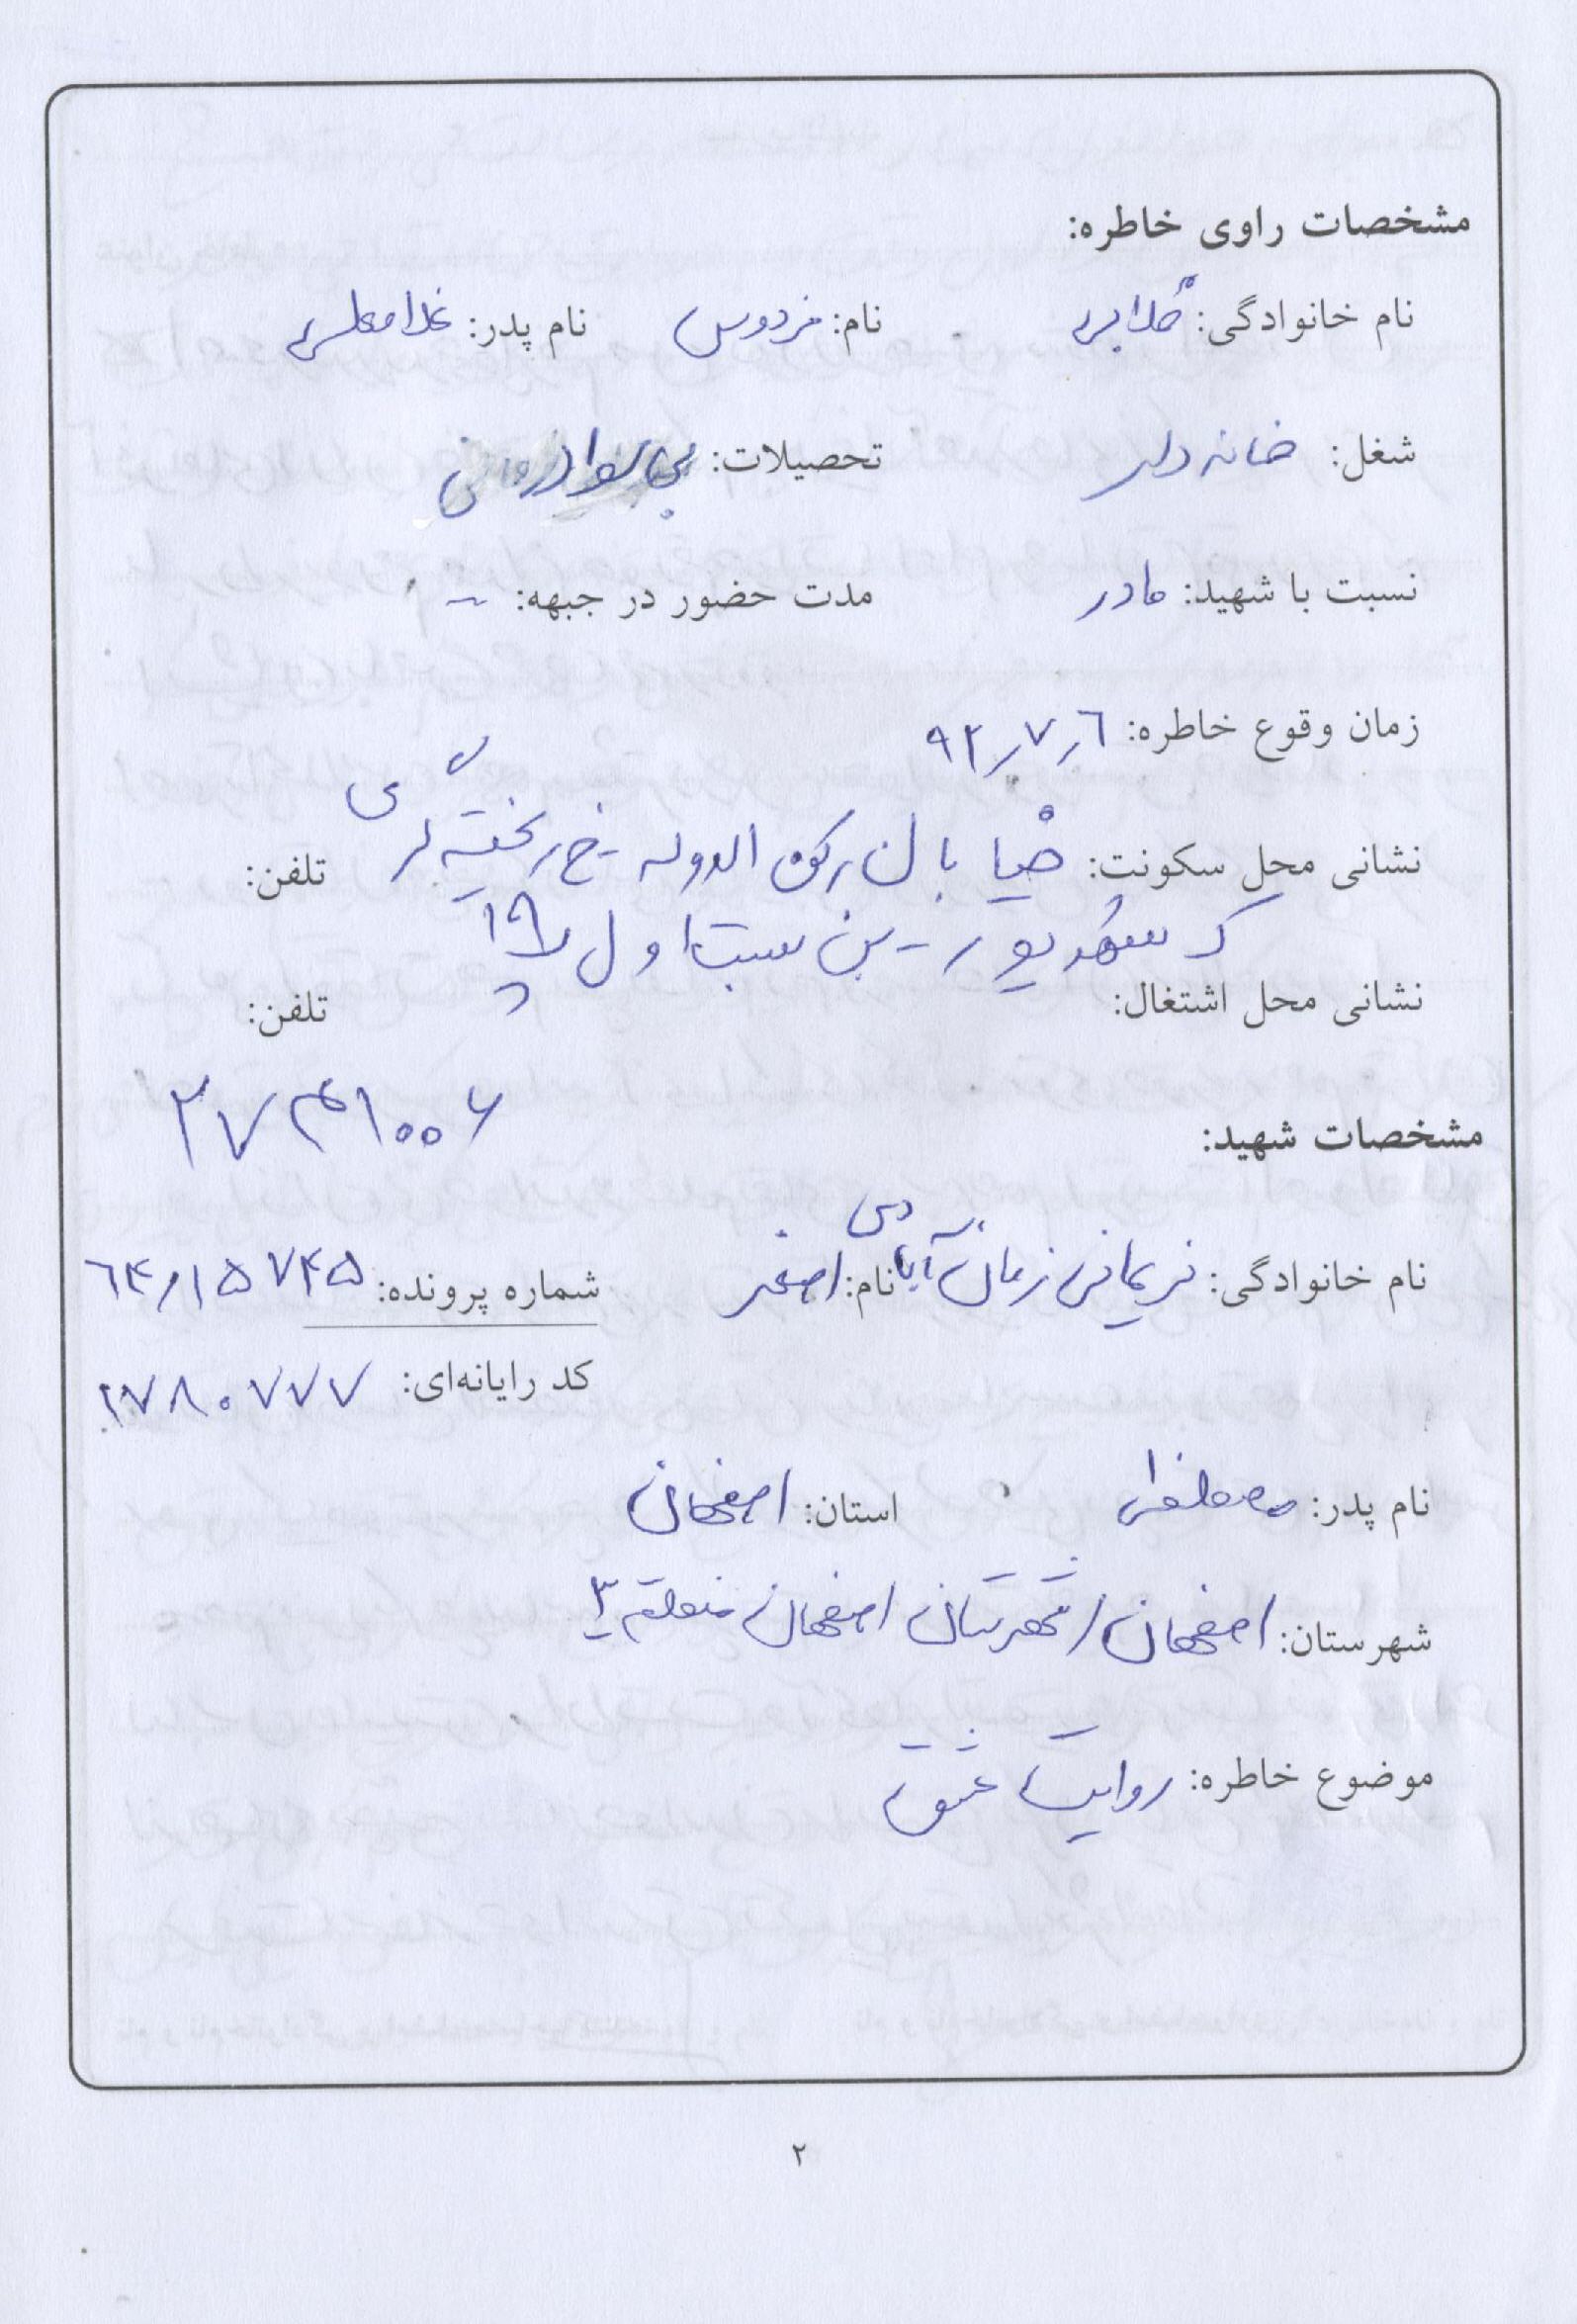 مشخصات راوی خاطره:
نام خانوادگی: گلابی نام: فردوس نام پدر: غلامعلی
شغل: خانه دار تحصیلات: بی سواد
نسبت با شهید: مادر مدت حضور در جبهه: -
زمان وقوع خاطره: ۹۲٫۷٫۶
نشانی محل سکونت: خیابان رکن الدوله - خ تلفن:
ک - بن بست اول پ ۱۹
نشانی محل اشتغال: تلفن:
۲۷۳۱۰۰۶
مشخصات شهید:
نام خانوادگی: نریمانی زمان آبادی نام: اصغر شماره پرونده: ۶۴٫۱۵۷۴۵
کد رایانه‌ای: ۲۷۸۰۷۷۷
نام پدر: مصطفی استان: اصفهان
شهرستان: اصفهان / شهرستان اصفهان منطقه ۳
موضوع خاطره: روایت عشق
۲